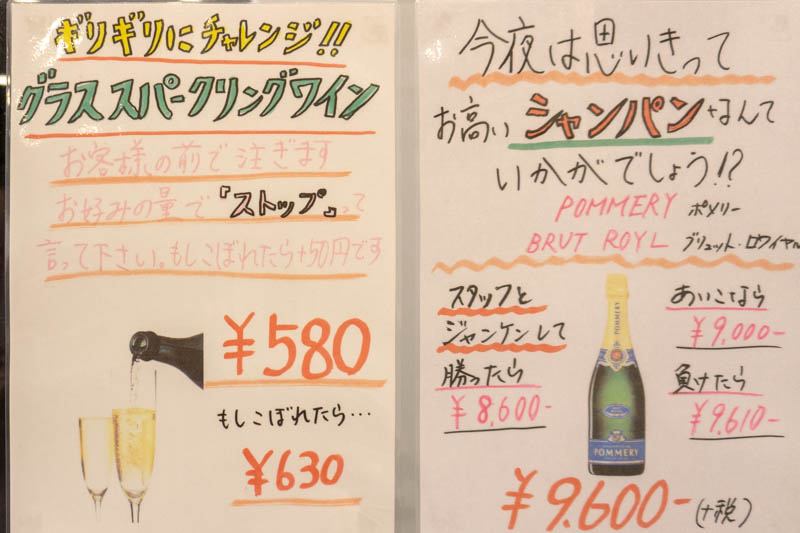 ギリギリにチャレンジ!!
グラススパークリングワイン
お客様の前で注ぎます
お好みの量で『ストップ』って
言って下さい。もしこぼれたら+50円です
¥580
もしこぼれたら…
¥630
今夜は思いきって
お高いシャンパンなんて
いかがでしょう!?
POMMERY ポメリー
BRUT ROYL ブリュット・ロワイヤル
スタッフと
ジャンケンして
勝ったら
¥8,600-
あいこなら
¥9,000-
負けたら
¥9,610-
POMMERY
POMMERY
¥9,600-(+税)